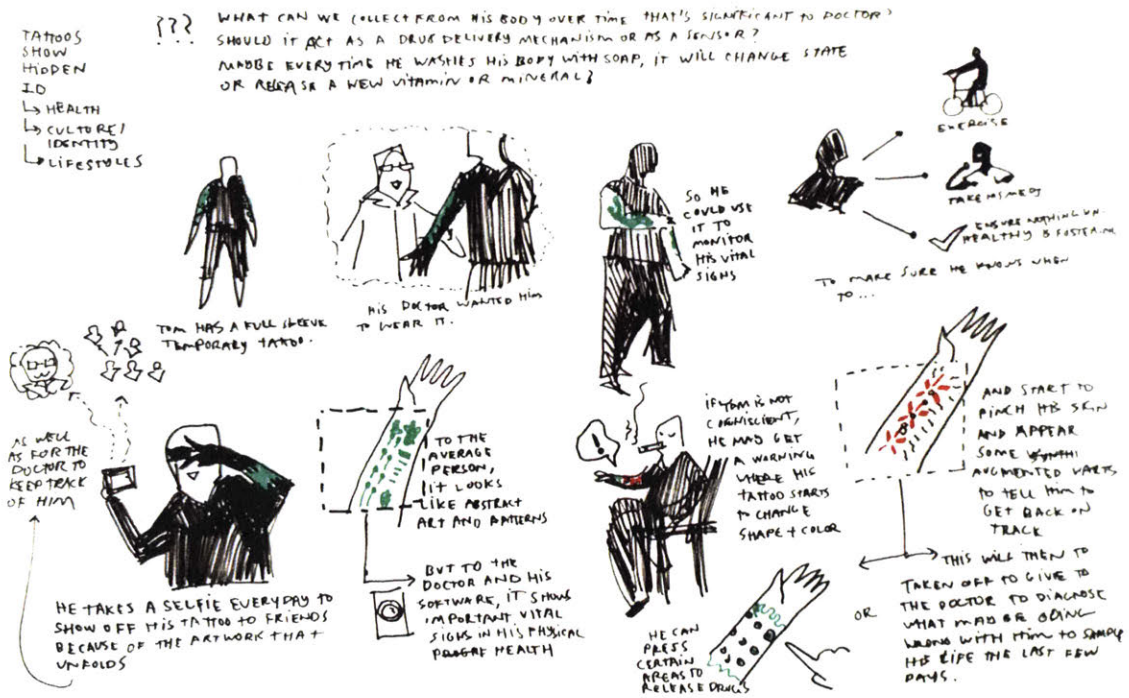 TATTOOS
SHOW
HIDDEN
ID
↳ HEALTH
↳ CULTURE/
IDENTITY
↳ LIFESTYLES
??? WHAT CAN WE COLLECT FROM HIS BODY OVER TIME THAT'S SIGNIFICANT TO DOCTOR?
SHOULD IT ACT AS A DRUG DELIVERY MECHANISM OR AS A SENSOR?
MAYBE EVERYTIME HE WASHES HIS BODY WITH SOAP, IT WILL CHANGE STATE
OR RELEASE A NEW VITAMIN OR MINERAL?
TOM HAS A FULL SLEEVE
TEMPORARY TATTOO.
HIS DOCTOR WANTED HIM
TO WEAR IT.
SO HE
COULD USE
IT TO
MONITOR
HIS VITAL
SIGNS
EXERCISE
TAKE HIS MEDS
ENSURE NOTHING UN-
HEALTHY IS FOSTERING
TO MAKE SURE HE KNOWS WHEN
TO...
AS WELL
AS FOR THE
DOCTOR TO
KEEP TRACK
OF HIM
HE TAKES A SELFIE EVERYDAY TO
SHOW OFF HIS TATTOO TO FRIENDS
BECAUSE OF THE ARTWORK THAT
UNFOLDS
TO THE
AVERAGE
PERSON,
IT LOOKS
LIKE ABSTRACT
ART AND PATTERNS
BUT TO THE
DOCTOR AND HIS
SOFTWARE, IT SHOWS
IMPORTANT VITAL
SIGNS IN HIS PHYSICAL
HEALTH
!
IF TOM IS NOT
COGNISCIENT,
HE MAY GET
A WARNING
WHERE HIS
TATTOO STARTS
TO CHANGE
SHAPE + COLOR
AND START TO
PINCH HIS SKIN
AND APPEAR
SOME
AUGMENTED WARTS
TO TELL HIM TO
GET BACK ON
TRACK
THIS WILL THEN TO
TAKEN OFF TO GIVE TO
THE DOCTOR TO DIAGNOSE
WHAT MAY BE GOING
WRONG WITH HIM TO SAMPLE
HIS LIFE THE LAST FEW
DAYS.
OR
HE CAN
PRESS
CERTAIN
AREAS TO
RELEASE DRUGS